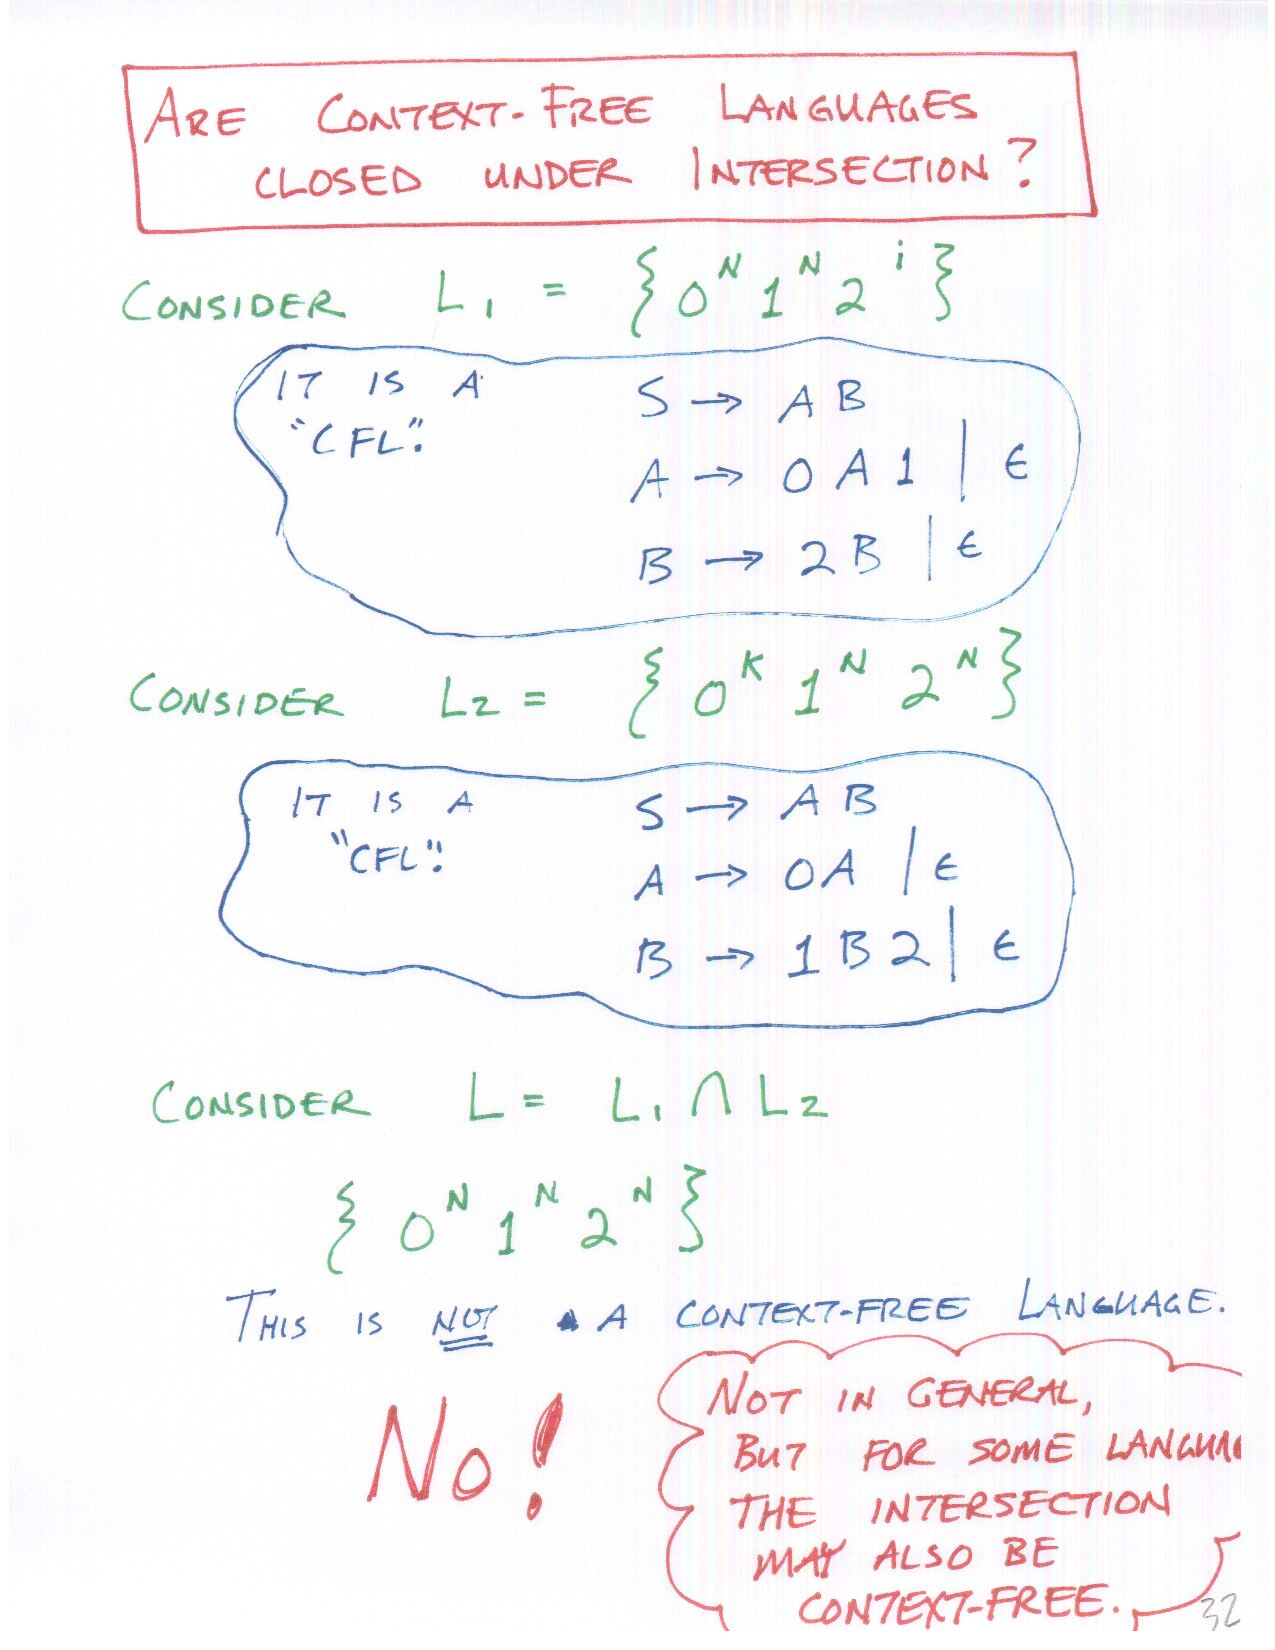 ARE CONTEXT-FREE LANGUAGES
CLOSED UNDER INTERSECTION?
CONSIDER L₁ = {0ᴺ 1ᴺ 2ⁱ}
IT IS A
"CFL".
S → A B
A → 0 A 1 | ε
B → 2 B | ε
CONSIDER L₂ = {0ᴷ 1ᴺ 2ᴺ}
IT IS A
"CFL".
S → A B
A → 0 A | ε
B → 1 B 2 | ε
CONSIDER L = L₁ ∩ L₂
{0ᴺ 1ᴺ 2ᴺ}
THIS IS NOT A CONTEXT-FREE LANGUAGE.
NO!
NOT IN GENERAL,
BUT FOR SOME
THE INTERSECTION
MAY ALSO BE
CONTEXT-FREE.
32